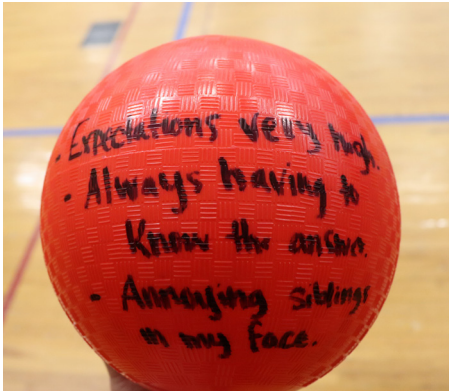 - Expectations very high.
- Always having to
Know the answer.
- Annoying siblings
in my face.